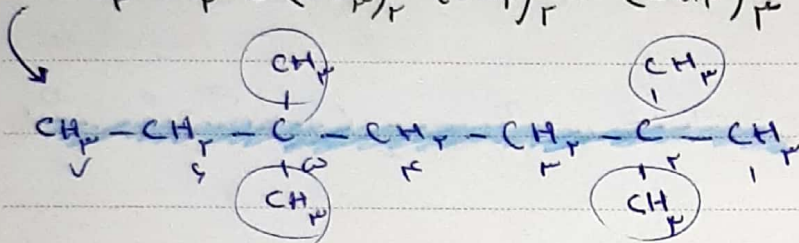 CH۳ CH۳
CH۳ – CH۲ – C – CH۲ – CH۲ – C – CH۳
۷ ۶ ۵ ۴ ۳ ۲ ۱
CH۳ CH۳